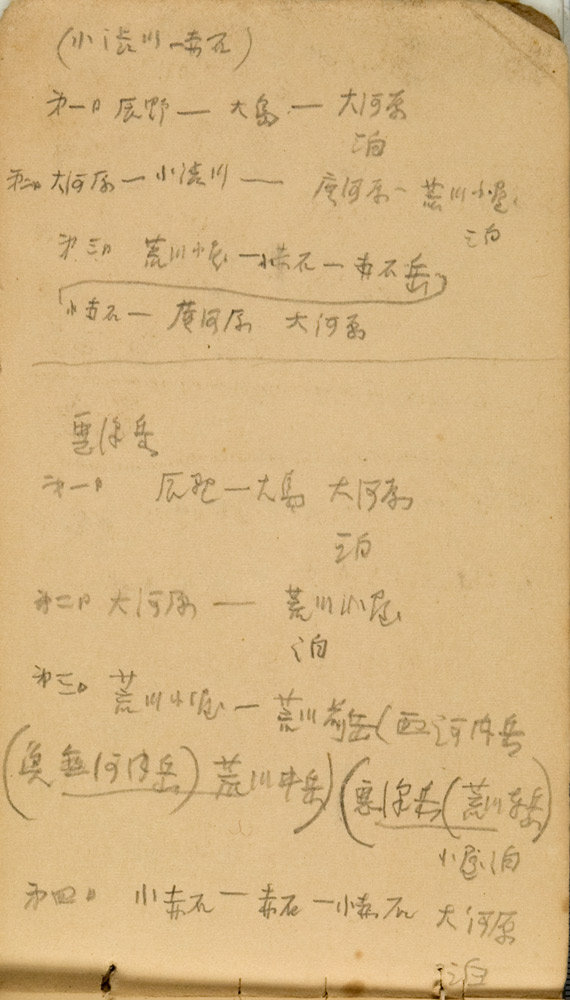 (小渋川―赤石)
第一日 辰野 ― 大島 ― 大河原
泊
第二日 大河原 ― 小渋川 ― 広河原 ― 荒川小屋
泊
第三日 荒川小屋 ― 小赤石 ― 赤石岳
小赤石 ― 広河原 大河原
悪沢岳
第一日 辰野 ― 大島 大河原
泊
第二日 大河原 ― 荒川小屋
泊
第三日 荒川小屋 ― 荒川前岳(西河内岳
(奥西河内岳) 荒川中岳) (悪沢岳(荒川東岳)
小屋泊
第四日 小赤石 ― 赤石 ― 小赤石 大河原
泊